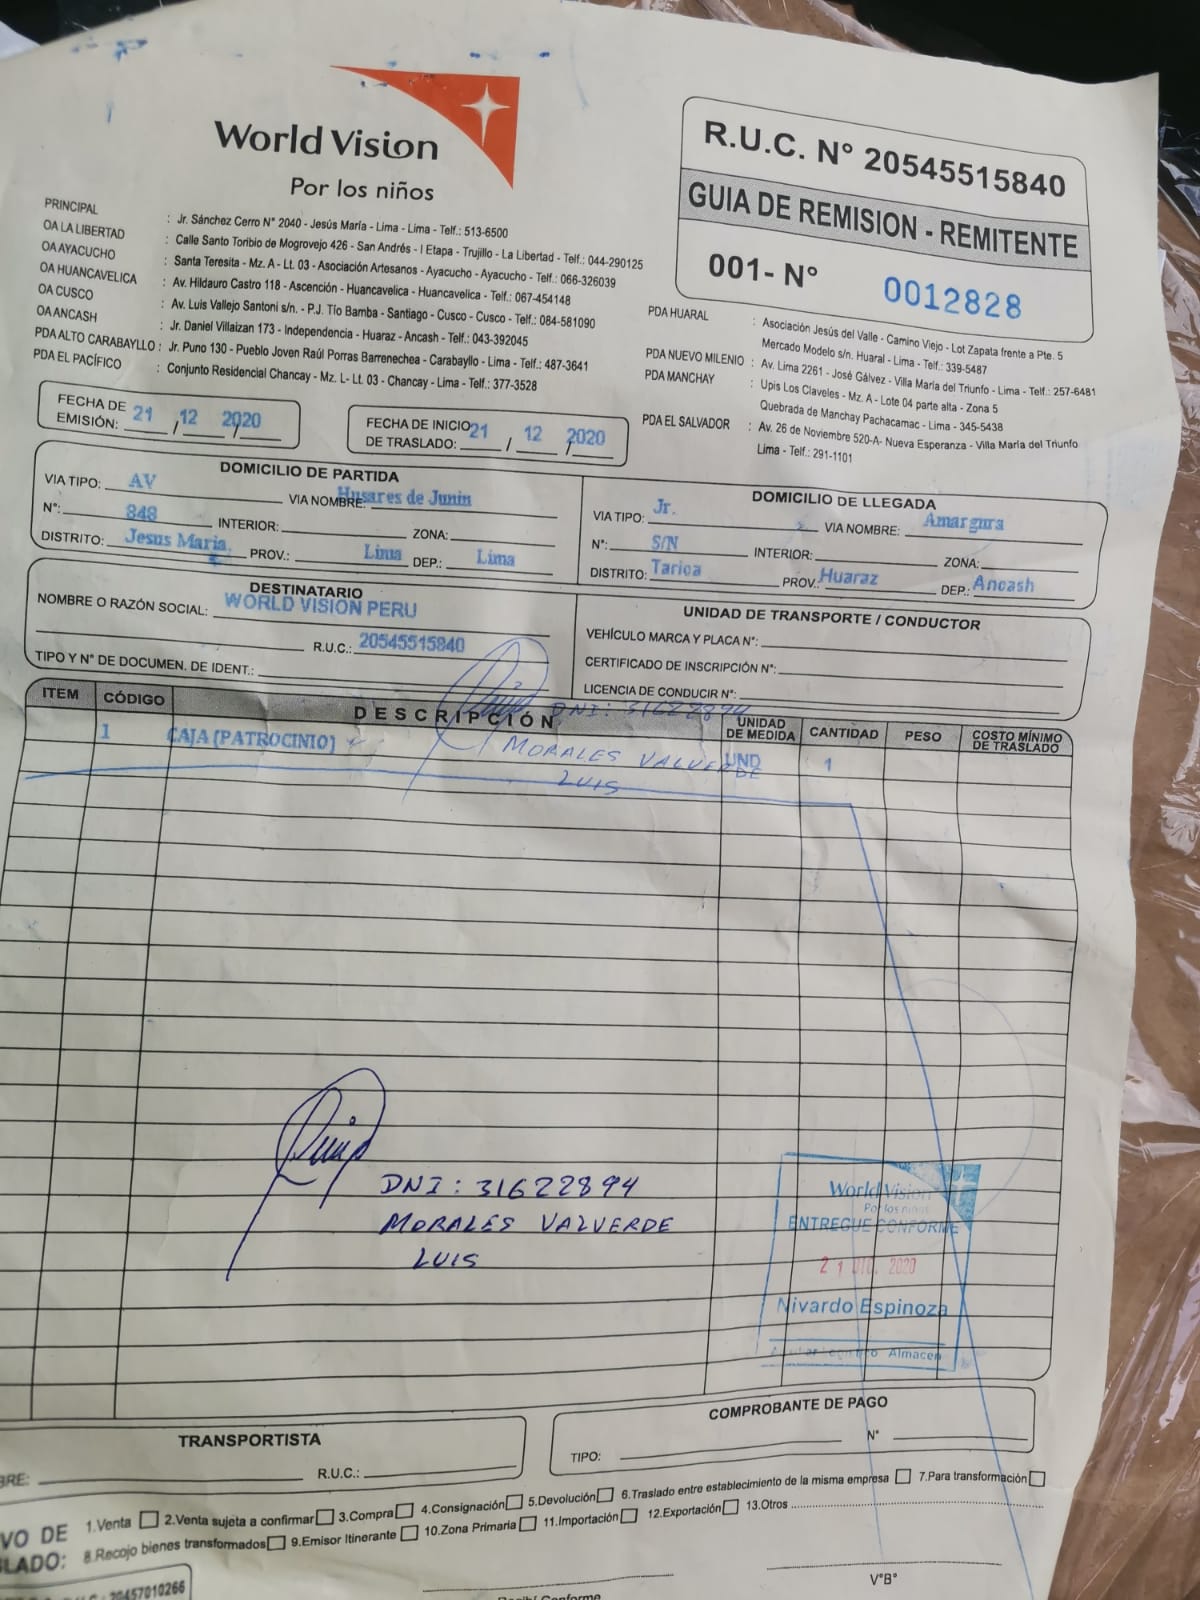 World Vision
Por los niños
R.U.C. N° 20545515840
GUIA DE REMISION - REMITENTE
001- N° 0012828
PRINCIPAL : Jr. Sánchez Cerro N° 2040 - Jesús María - Lima - Lima - Telf.: 513-6500
OA LA LIBERTAD : Calle Santo Toribio de Mogrovejo 426 - San Andrés - I Etapa - Trujillo - La Libertad - Telf.: 044-290125
OA AYACUCHO : Santa Teresita - Mz. A - Lt. 03 - Asociación Artesanos - Ayacucho - Ayacucho - Telf.: 066-326039
OA HUANCAVELICA : Av. Hildauro Castro 118 - Ascención - Huancavelica - Huancavelica - Telf.: 067-454148
OA CUSCO : Av. Luis Vallejo Santoni s/n. - P.J. Tío Bamba - Santiago - Cusco - Cusco - Telf.: 084-581090
OA ANCASH : Jr. Daniel Villaizan 173 - Independencia - Huaraz - Ancash - Telf.: 043-392045
PDA ALTO CARABAYLLO : Jr. Puno 130 - Pueblo Joven Raúl Porras Barrenechea - Carabayllo - Lima - Telf.: 487-3641
PDA EL PACÍFICO : Conjunto Residencial Chancay - Mz. L- Lt. 03 - Chancay - Lima - Telf.: 377-3528
PDA HUARAL : Asociación Jesús del Valle - Camino Viejo - Lot Zapata frente a Pte. 5
Mercado Modelo s/n. Huaral - Lima - Telf.: 339-5487
PDA NUEVO MILENIO : Av. Lima 2261 - José Gálvez - Villa María del Triunfo - Lima - Telf.: 257-6481
PDA MANCHAY : Upis Los Claveles - Mz. A - Lote 04 parte alta - Zona 5
Quebrada de Manchay Pachacamac - Lima - 345-5438
PDA EL SALVADOR : Av. 26 de Noviembre 520-A- Nueva Esperanza - Villa María del Triunfo
Lima - Telf.: 291-1101
FECHA DE EMISIÓN: 21 / 12 / 2020
FECHA DE INICIO DE TRASLADO: 21 / 12 / 2020
DOMICILIO DE PARTIDA
VIA TIPO: AV VIA NOMBRE: Husares de Junin
N°: 848 INTERIOR: ZONA:
DISTRITO: Jesus Maria. PROV.: Lima DEP.: Lima
DOMICILIO DE LLEGADA
VIA TIPO: Jr. VIA NOMBRE: Amargura
N°: S/N INTERIOR: ZONA:
DISTRITO: Tarica PROV.: Huaraz DEP.: Ancash
DESTINATARIO
NOMBRE O RAZÓN SOCIAL: WORLD VISION PERU
R.U.C.: 20545515840
TIPO Y N° DE DOCUMEN. DE IDENT.:
UNIDAD DE TRANSPORTE / CONDUCTOR
VEHÍCULO MARCA Y PLACA N°:
CERTIFICADO DE INSCRIPCIÓN N°:
LICENCIA DE CONDUCIR N°:
ITEM CÓDIGO DESCRIPCIÓN UNIDAD DE MEDIDA CANTIDAD PESO COSTO MÍNIMO DE TRASLADO
1 CAJA (PATROCINIO) UND 1
DNI: 31622894
MORALES VALVERDE
LUIS
DNI: 31622894
MORALES VALVERDE
LUIS
World Vision
Por los niños
ENTREGUE CONFORME
21 DIC. 2020
Nivardo Espinoza
Almacen
TRANSPORTISTA
BRE: R.U.C.:
COMPROBANTE DE PAGO
TIPO: N°
VO DE
LADO:
1.Venta 2.Venta sujeta a confirmar 3.Compra 4.Consignación 5.Devolución 6.Traslado entre establecimiento de la misma empresa 7.Para transformación
8.Recojo bienes transformados 9.Emisor Itinerante 10.Zona Primaria 11.Importación 12.Exportación 13.Otros
20457010266
Conforme
V°B°